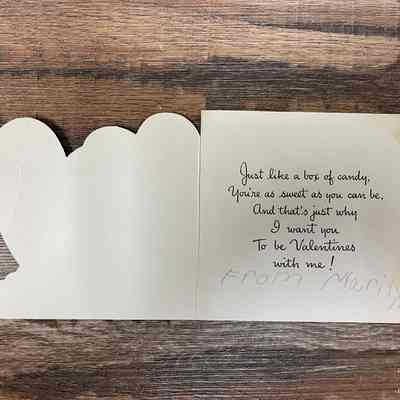 Just like a box of candy,
You're as sweet as you can be,
And that's just why
I want you
To be Valentines
with me!
From